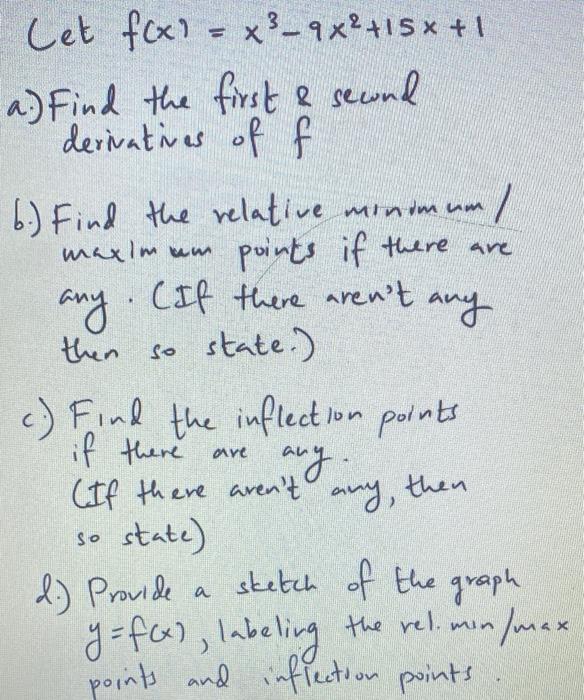 Let f(x) = x³-9x²+15x+1
a.) Find the first & second
derivatives of f
b.) Find the relative minimum/
maximum points if there are
any. (If there aren't any
then so state.)
c.) Find the inflection points
if there are any.
(If there aren't any, then
so state)
d.) Provide a sketch of the graph
y=f(x), labeling the rel. min/max
points and inflection points.